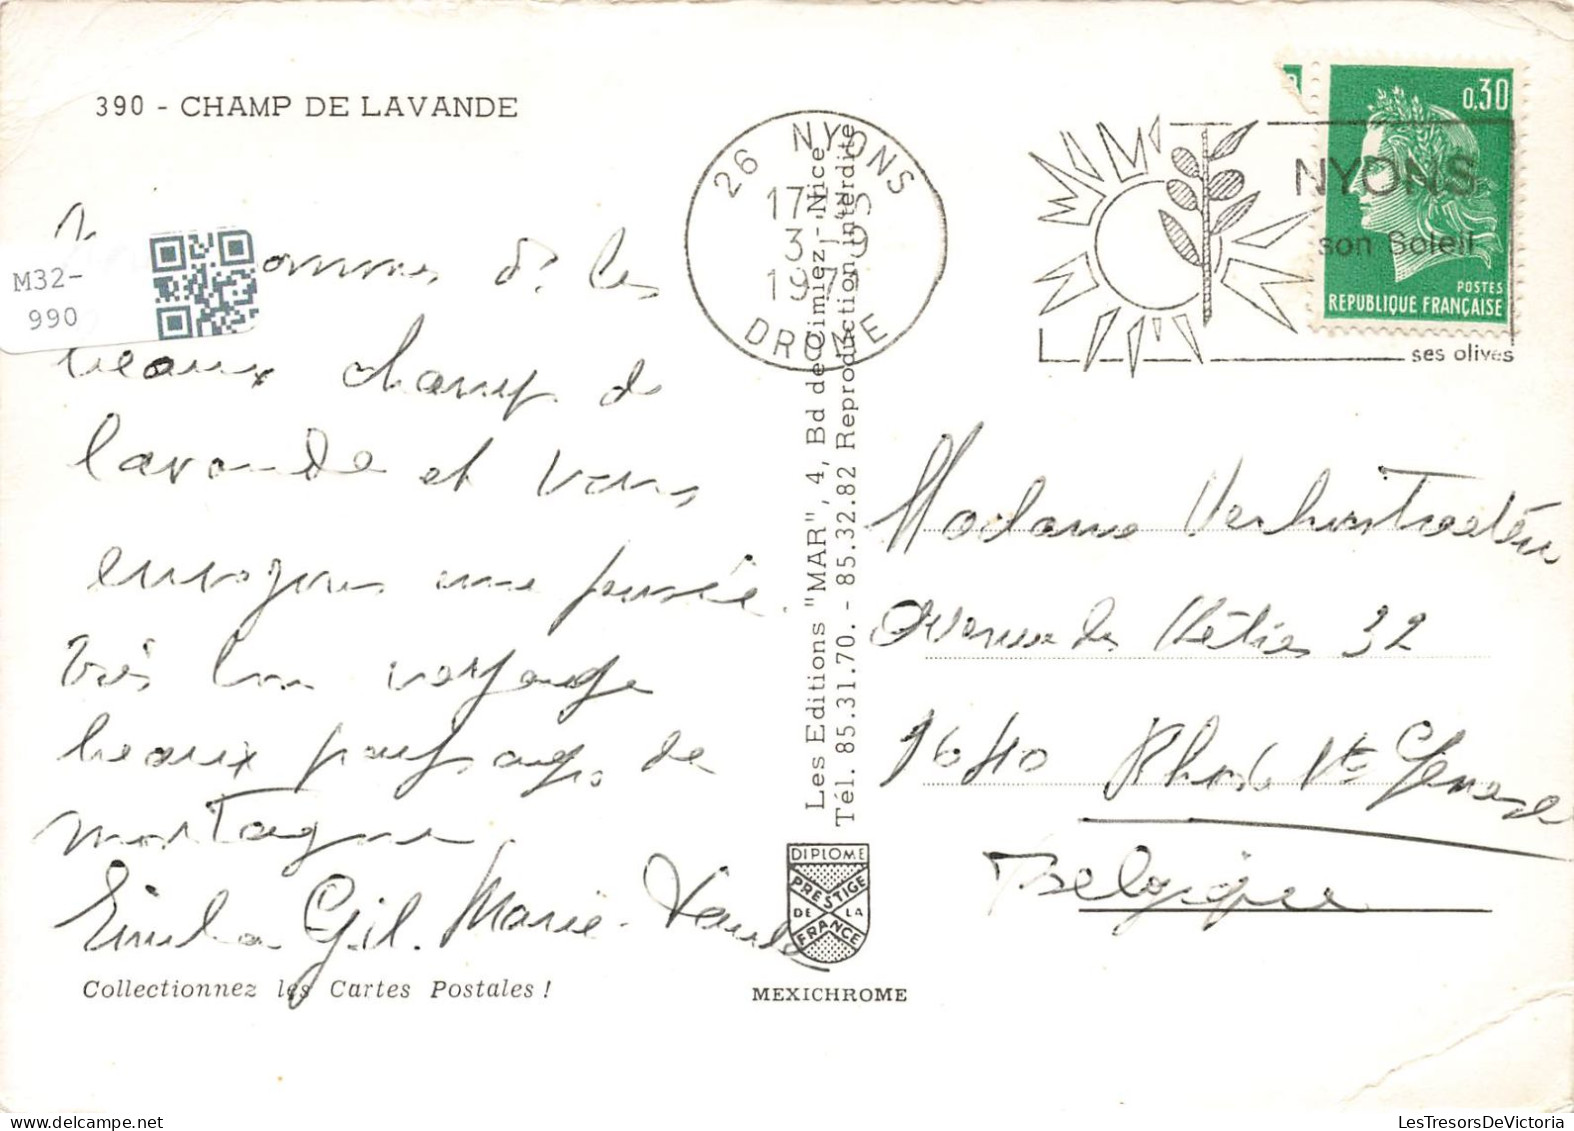 390 - CHAMP DE LAVANDE
M32-
990
sommes ds les
beaux champs de
lavande et vous
envoyons une pensée.
très bon voyage
beaux paysages de
montagne.
Gil. Marie-Paule
Collectionnez les Cartes Postales !
26 NYONS
17H
3 - 9
DROME
Les Editions "MAR", 4, Bd de Cimiez - Nice
Tél. 85.31.70. - 85.32.82 Reproduction interdite
DIPLOME
PRESTIGE
DE LA
FRANCE
MEXICHROME
0,30
POSTES
REPUBLIQUE FRANÇAISE
NYONS
son Soleil
ses olives
Madame Verhustraeten
Avenue des 32
1640 Rhode St Genese
Belgique
LesTresorsDeVictoria.com